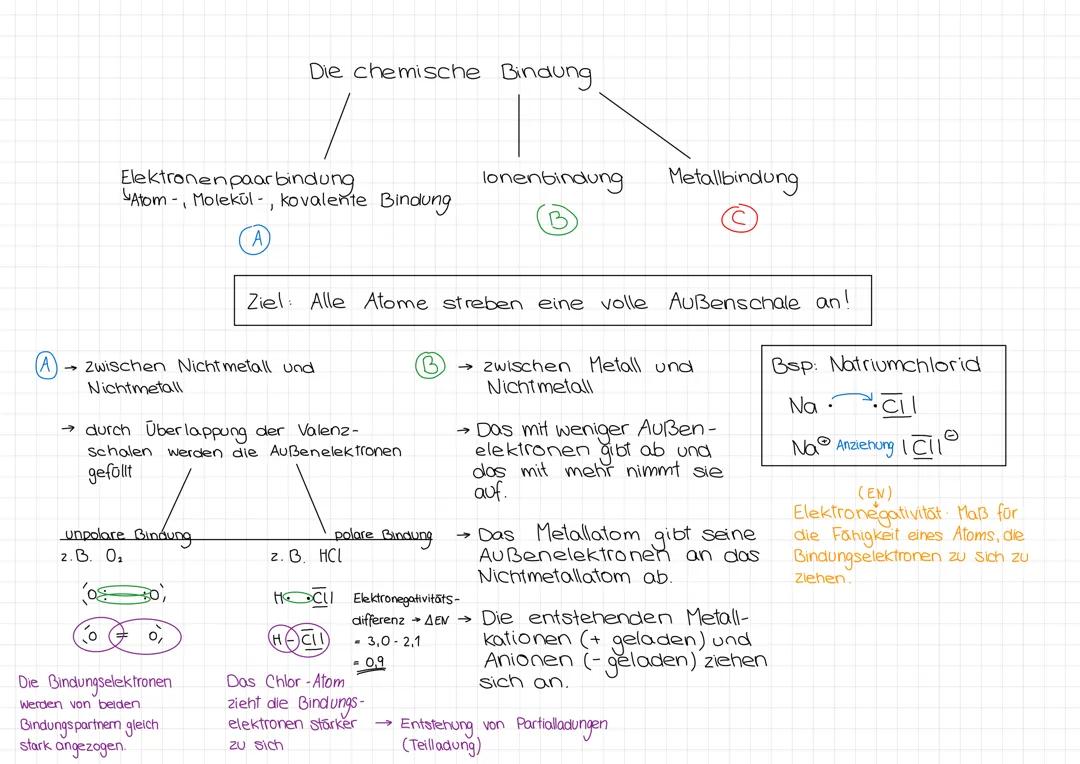 Die chemische Bindung
Elektronenpaarbindung
↳Atom-, Molekül-, kovalente Bindung
Ionenbindung
Metallbindung
A
B
C
Ziel: Alle Atome streben eine volle Außenschale an!
A → zwischen Nichtmetall und
Nichtmetall
→ durch Überlappung der Valenz-
schalen werden die Außenelektronen
gefüllt
unpolare Bindung
z.B. O₂
O O
O = O
Die Bindungselektronen
werden von beiden
Bindungspartnern gleich
stark angezogen.
polare Bindung
z.B. HCl
H· ·Cl|
H-Cl|
Elektronegativitäts-
differenz → ΔEN
= 3,0 - 2,1
= 0,9
Das Chlor-Atom
zieht die Bindungs-
elektronen stärker
zu sich
→ Entstehung von Partialladungen
(Teilladung)
B → zwischen Metall und
Nichtmetall
→ Das mit weniger Außen-
elektronen gibt ab und
das mit mehr nimmt sie
auf.
→ Das Metallatom gibt seine
Außenelektronen an das
Nichtmetallatom ab.
→ Die entstehenden Metall-
kationen (+ geladen) und
Anionen (- geladen) ziehen
sich an.
Bsp: Natriumchlorid
Na · ·Cl|
Na⊕ Anziehung |Cl|⊖
(EN)
Elektronegativität: Maß für
die Fähigkeit eines Atoms, die
Bindungselektronen zu sich zu
ziehen.